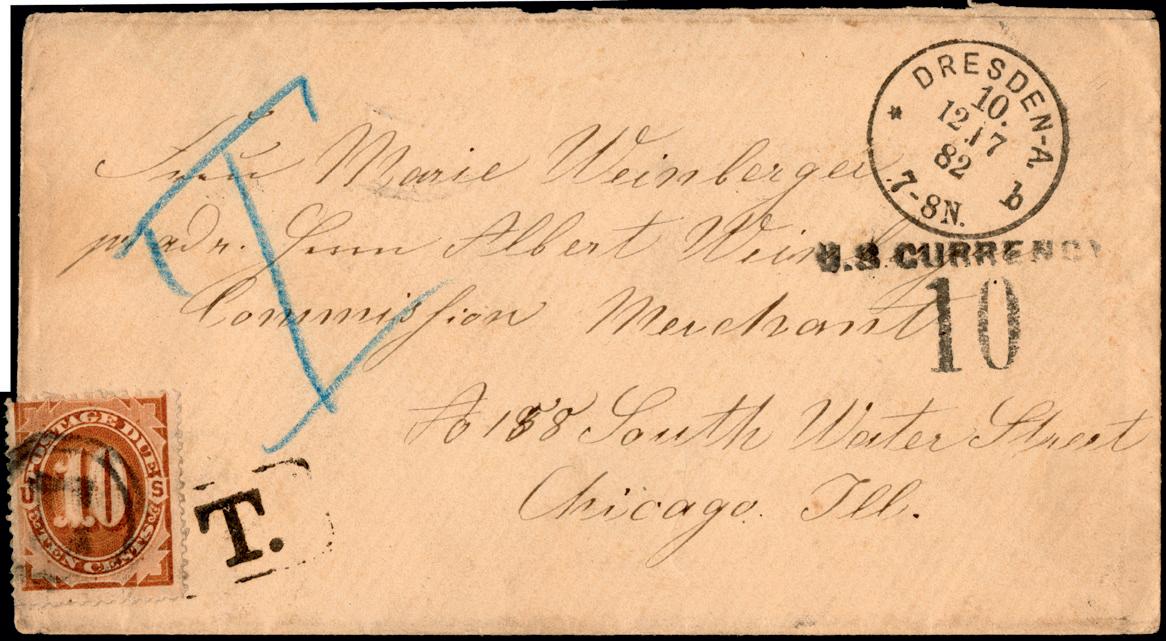 DRESDEN-A.
10.
12 17
82
7-8N.
b
Frau Marie Weinberger
p. adr. Herrn Albert Wein
Commission Merchant
U.S. CURRENCY
10
No 188 South Water Street
Chicago Ill.
POSTAGE DUE
U S
10
TEN CENTS
T.